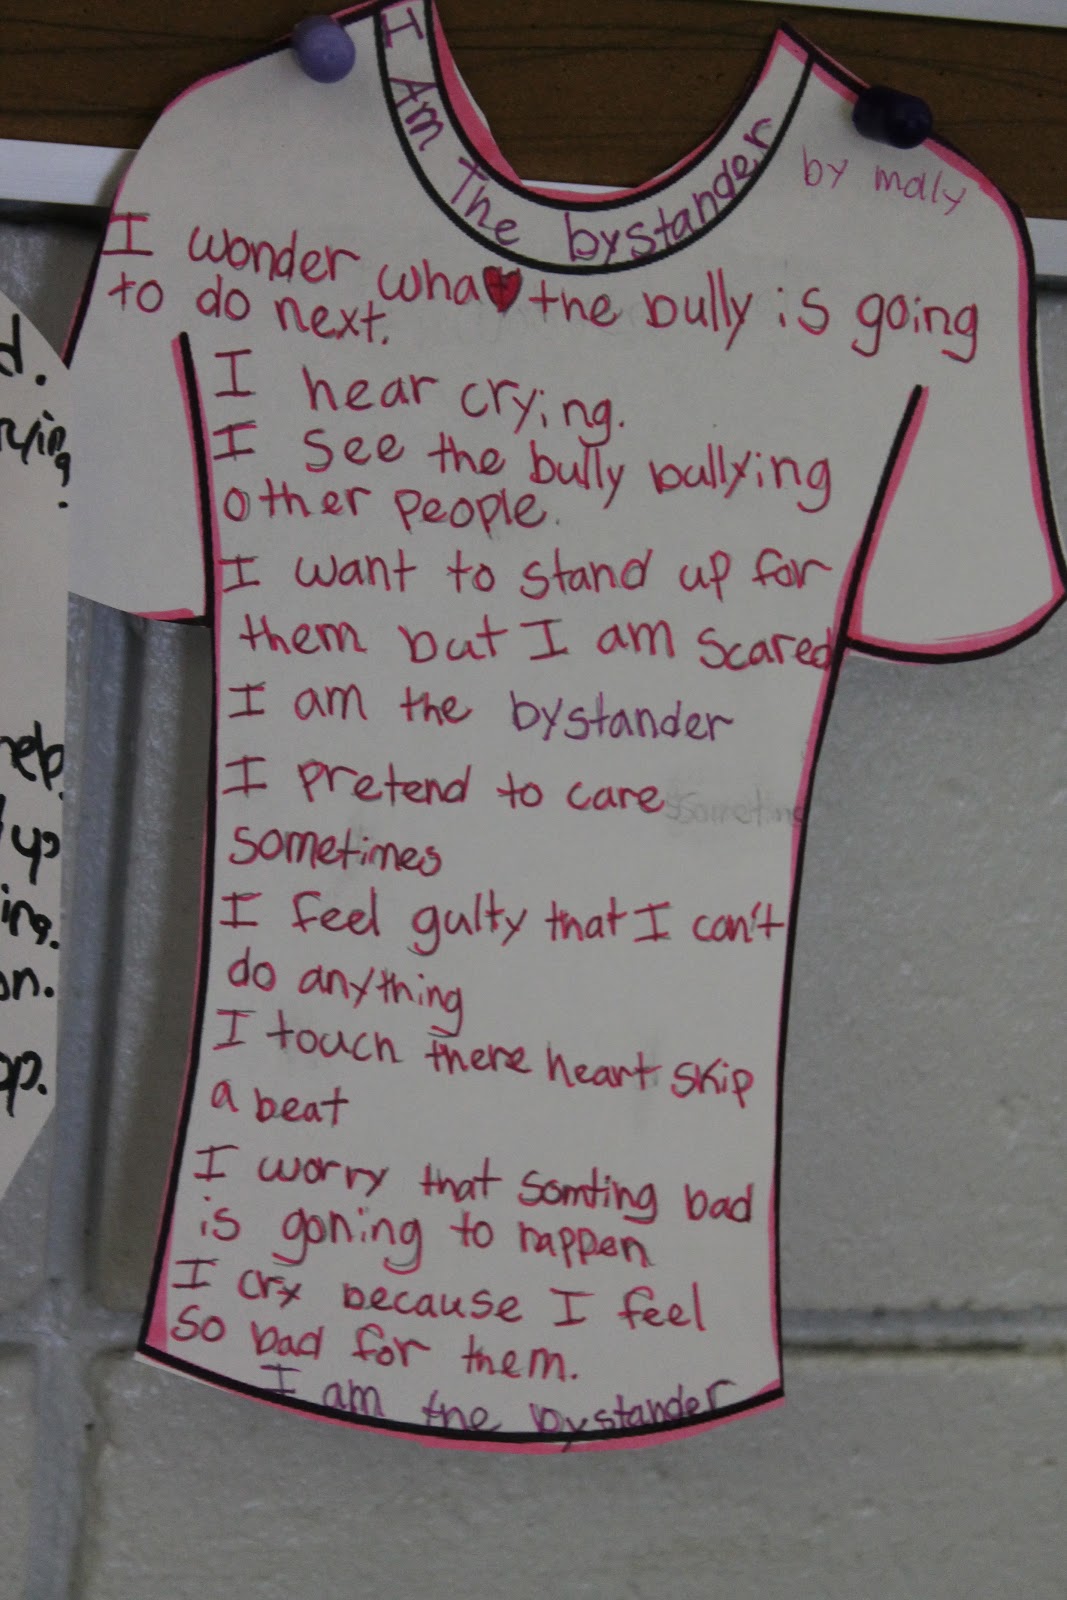 I Am The bystander
by molly
I wonder wha♥ the bully is going
to do next.
I hear crying.
I see the bully bullying
other people.
I want to stand up for
them but I am scared
I am the bystander
I pretend to care
sometimes
I feel gulty that I can't
do anything
I touch there heart skip
a beat
I worry that somting bad
is goning to happen
I cry because I feel
so bad for them.
I am the bystander